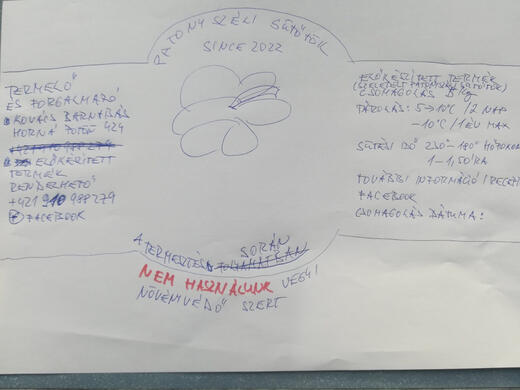 PATONYSZÉLI SÜTŐTÖK
SINCE 2022
TERMELŐ
ÉS FORGALMAZÓ
KOVÁCS BARNABÁS
HORNÁ POTÔŇ 424
ELŐKÉSZÍTETT
TERMÉK
RENDELHETŐ
+421 910 988 279
FACEBOOK
ELŐKÉSZÍTETT TERMÉK
(SZELETELT PATONYSZÉLI SÜTŐTÖK)
CSOMAGOLÁS
TÁROLÁS: 5→10°C /2 NAP
-10°C /1 ÉV MAX
SÜTÉSI IDŐ
1-1,5 ÓRA
TOVÁBBI INFORMÁCIÓ / RECEPT
FACEBOOK
CSOMAGOLÁS DÁTUMA:
A TERMESZTÉS SORÁN
NEM HASZNÁLUNK VEGYI
NÖVÉNYVÉDŐ SZERT